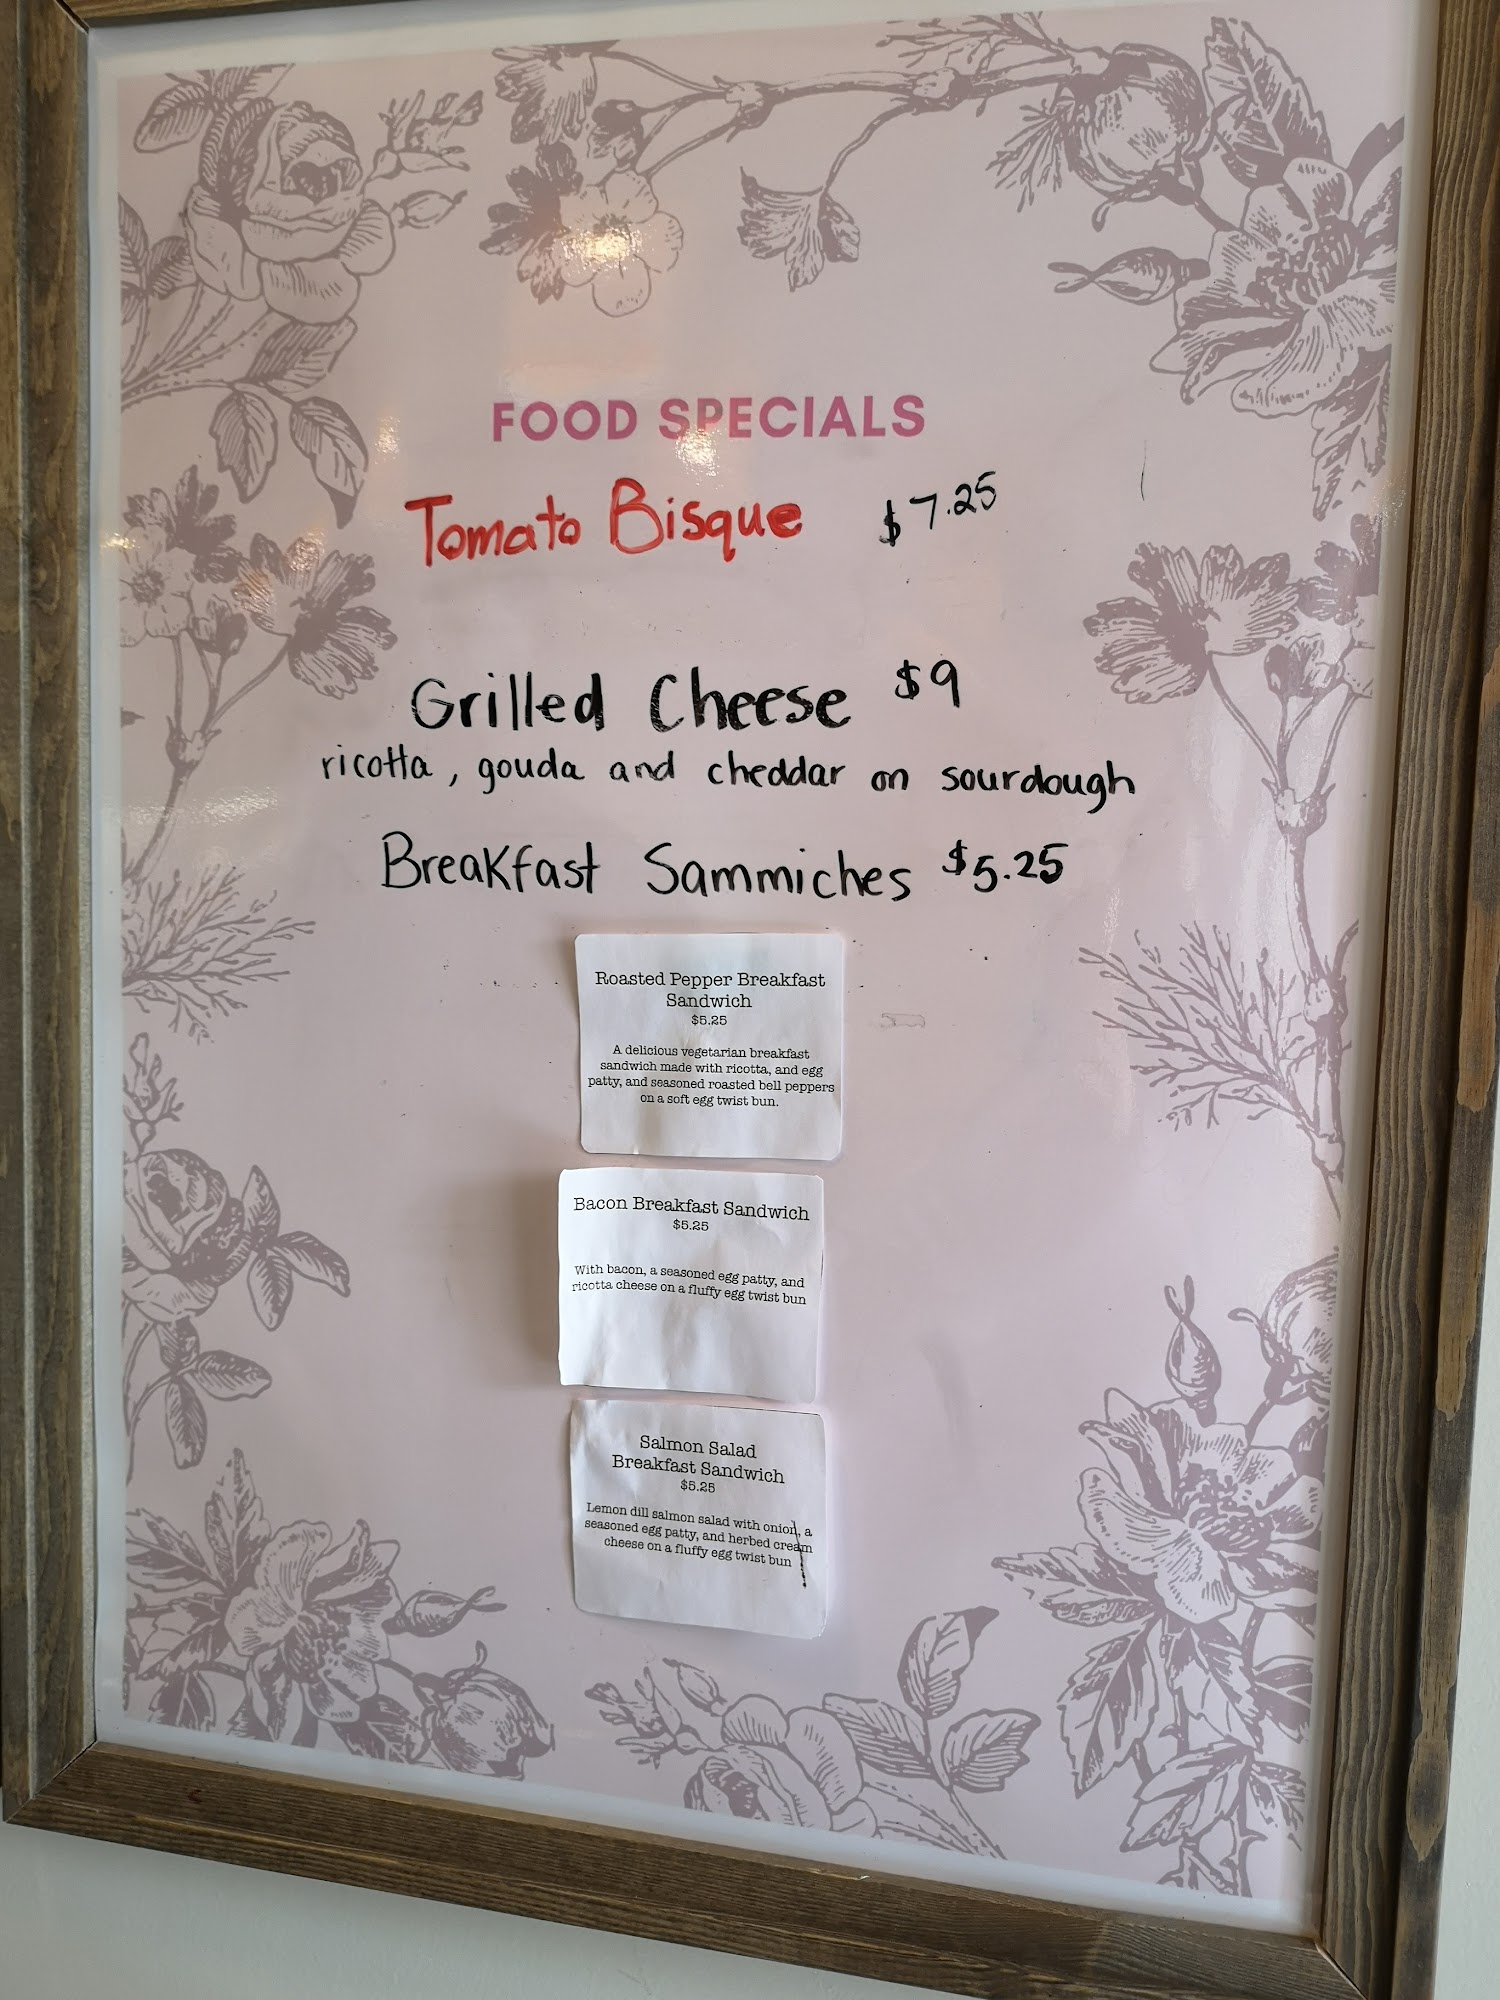 FOOD SPECIALS
Tomato Bisque $7.25
Grilled Cheese $9
ricotta, gouda and cheddar on sourdough
Breakfast Sammiches $5.25
Roasted Pepper Breakfast
Sandwich
$5.25
A delicious vegetarian breakfast
sandwich made with ricotta, and egg
patty, and seasoned roasted bell peppers
on a soft egg twist bun.
Bacon Breakfast Sandwich
$5.25
With bacon, a seasoned egg patty, and
ricotta cheese on a fluffy egg twist bun
Salmon Salad
Breakfast Sandwich
$5.25
Lemon dill salmon salad with onion, a
seasoned egg patty, and herbed cream
cheese on a fluffy egg twist bun